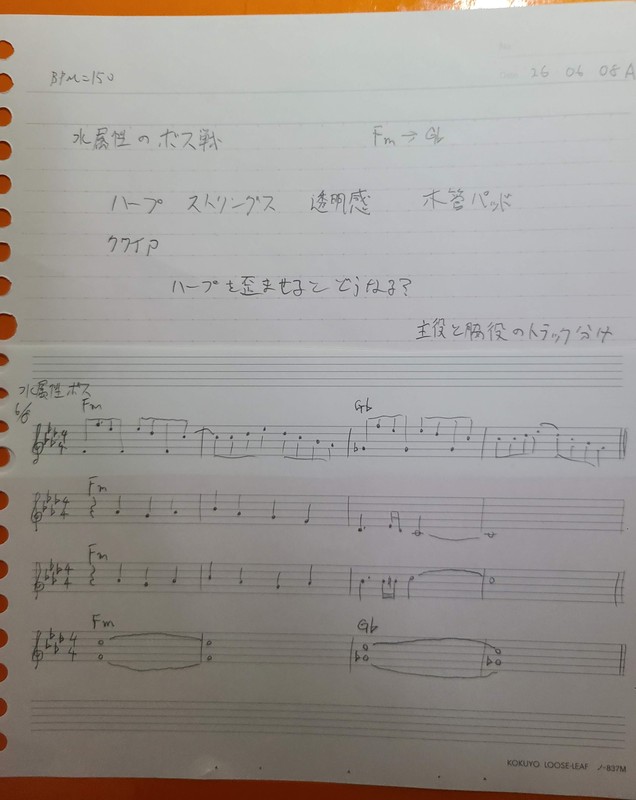 No.
Date 26 06 08 A
BPM=150
水属性のボス戦 Fm→G♭
ハープ ストリングス 透明感 木管パッド
クワイア
ハープを歪ませるとどうなる?
主役と脇役のトラック分け
水属性ボス
6/8
Fm G♭
4/4
Fm
4/4
Fm
4/4
Fm G♭
4/4
KOKUYO LOOSE-LEAF ノ-837M